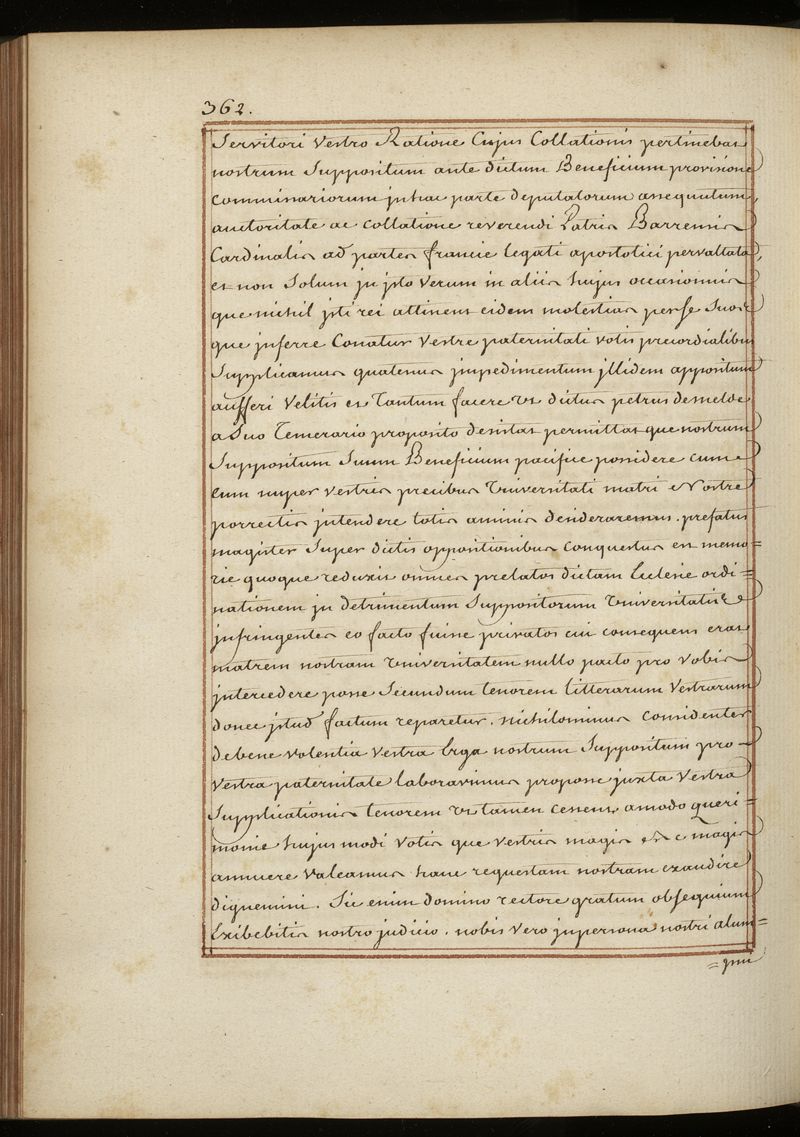 362.
Servitori Vestro Ratione Cujus Collationis pertinebat
nostrum Suppositum ante dictum Beneficium provisione
Commissariorum in hac parte deputatorum assequutum,
auctoritate ac collatione reverendi Patris Barrensis
Cardinalis ad partes francie legati apostolici pervallata,
et non Solum in isto Verum in aliis hujus occasionis
que nichil isti rei attinent eidem molestias per se Suos
que inferre Conatur Vestre paternitati votis precordialibus
Supplicamus quatenus impedimentum illidem appositum
aufferi Velitis et Tantum facere Vt dictus petrus desmelde
a Suo Temerario proposito desistat permittat que nostrum
Suppositum Suum Beneficium pacifice possidere cum
cum nuper vestris precibus Vniversitati matri Nostre
porrectis intendere totis animis desideraremus. prefatus
magister Super dictis oppositionibus conquestus est memo=
rie quoque reduxit omnes prelatos dictam Eulesie ordi=
nationem in detrimentum Suppositorum Vniversitatis
infringentes eo facto fuisse privatos cui consequens erat
matrem nostram Vniversitatem nullo pacto pro Vobis
intercedere posse Secundum tenorem litterarum Vestrarum
donec istud factum reparetur. nichilominus Considentes
de bene volentia Vestra Erga nostrum Suppositum pro
Vestra paternitate laboravimus propone juxta Vestra
Supplicationis tenorem Vt tamen cessent amodo queri=
monie hujus modi Votis que vestris magis magis
annuere Valeamus hanc requestam nostram exaudire
dignemini. Sic enim domino rectore gratum obsequium
Exibebitis nostro judicio. nobis vero in persona nostri alum=
=gnii